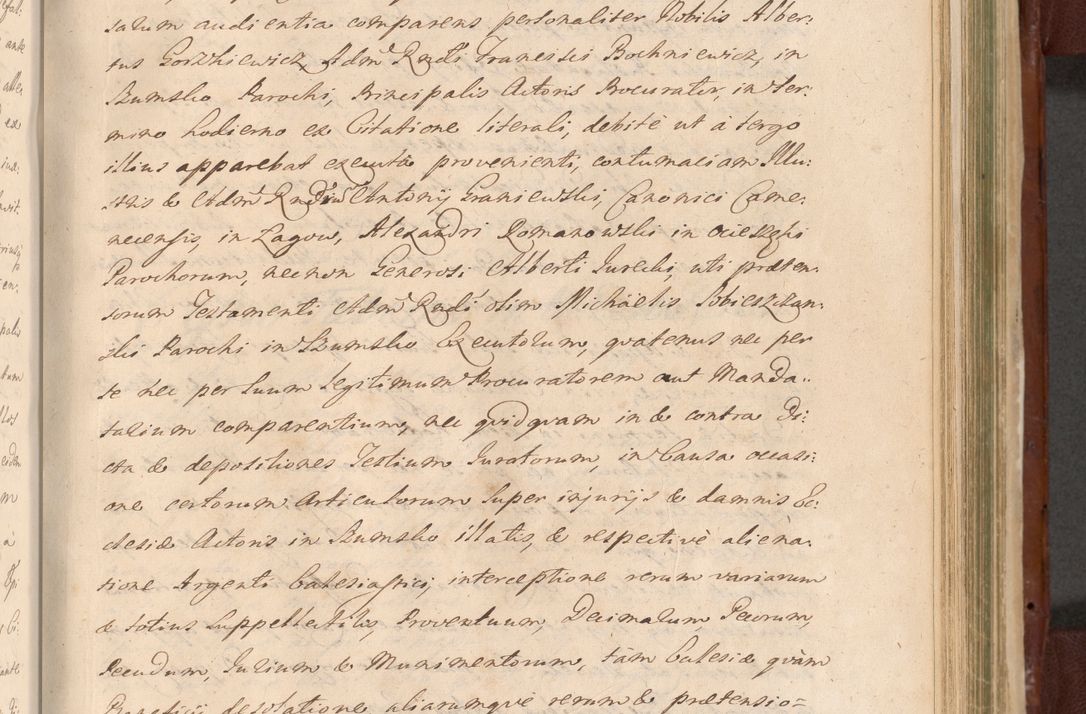 sarum audientia comparens personaliter Nobilis Alber:
tus Gorzkiewicz, Admᵈ Rndi Francisci Bochniewicz, in
Szumsko Parochi, Principalis Actoris Procurator, in ter:
mino hodierno ex Citatione literali, debitè ut à tergo
illius apparebat executa provenienti, contumaciam Illu:
stris & Admᵈ Rndoru Antonij Graniewski, Canonici Came:
necensis, in Łagow, Alexandri Romanowski in Ocieszki
Parochorum, necnon Generosi Alberti Jurecki, uti præten:
sorum Testamenti Admᵈ Rndi olim Michaelis Sobieszczan:
ski Parochi in Szumsko Executorum, quatenus nec per
se nec per suum legitimum Procuratorem aut Manda:
tarium comparentium, nec quidquam in & contra Di:
cta & depositiones Testium Juratorum, in Causa occasi:
one certorum Articulorum super injurijs & damnis Ec:
clesiæ Actoris in Szumsko illatis, & respectivè aliena:
tione Argenti Eccclesiastici, interceptione rerum variarum
& totius suppellectilis, Proventuum, Decimarum, Pecorum,
Pecudum, Jurium & Munimentorum, tàm Ecclesiæ quàm
Beneficij desolatione aliarumque rerum & prætensio=